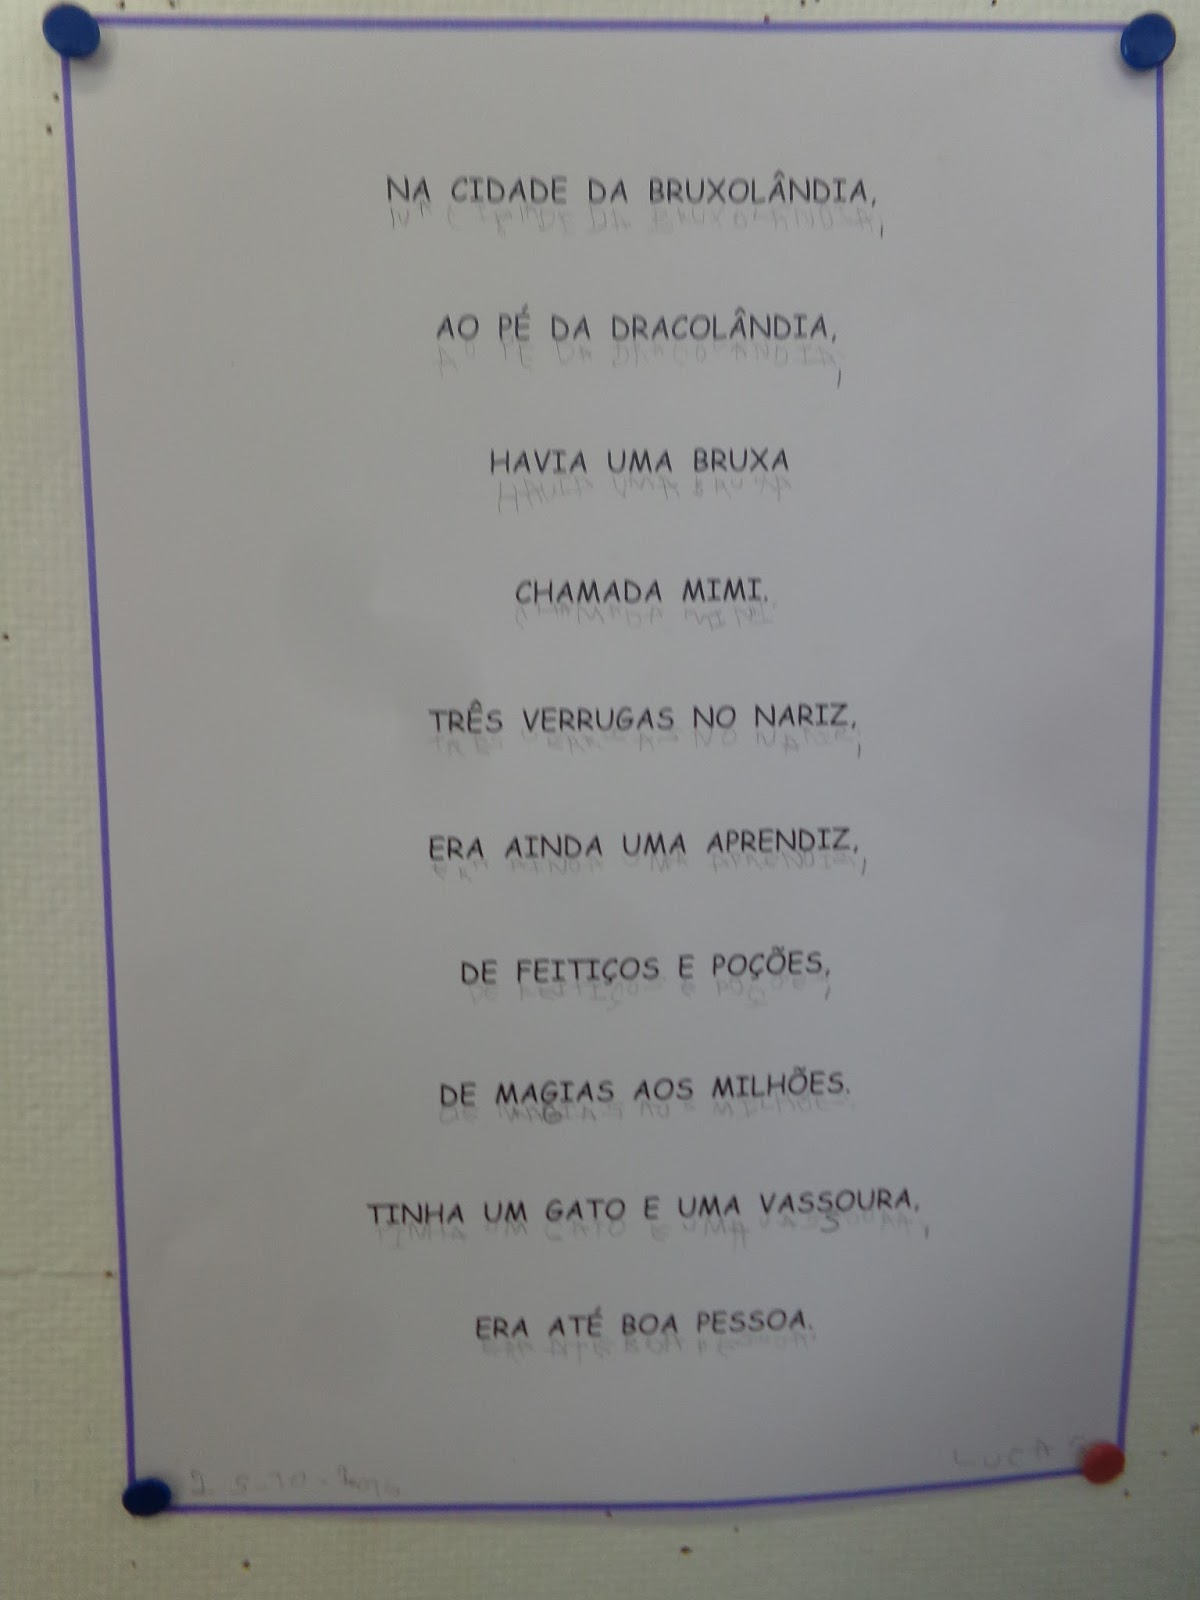 NA CIDADE DA BRUXOLÂNDIA,
NA CIDADE DA BRUXOLANDIA,
AO PÉ DA DRACOLÂNDIA,
AO PE DA DRACOLANDIA,
HAVIA UMA BRUXA
HAVIA UMA BRUXA
CHAMADA MIMI.
CHAMADA MIMI.
TRÊS VERRUGAS NO NARIZ,
TRES NO NARIZ,
ERA AINDA UMA APRENDIZ,
ERA AINDA UMA APRENDIZ,
DE FEITIÇOS E POÇÕES,
DE FEITIÇOS E POÇOES,
DE MAGIAS AOS MILHÕES.
DE MAGIAS AOS MILHOES.
TINHA UM GATO E UMA VASSOURA,
TINHA UM GATO E UMA VASSOURA,
ERA ATÉ BOA PESSOA.
ERA ATE BOA PESSOA.
LUCAS